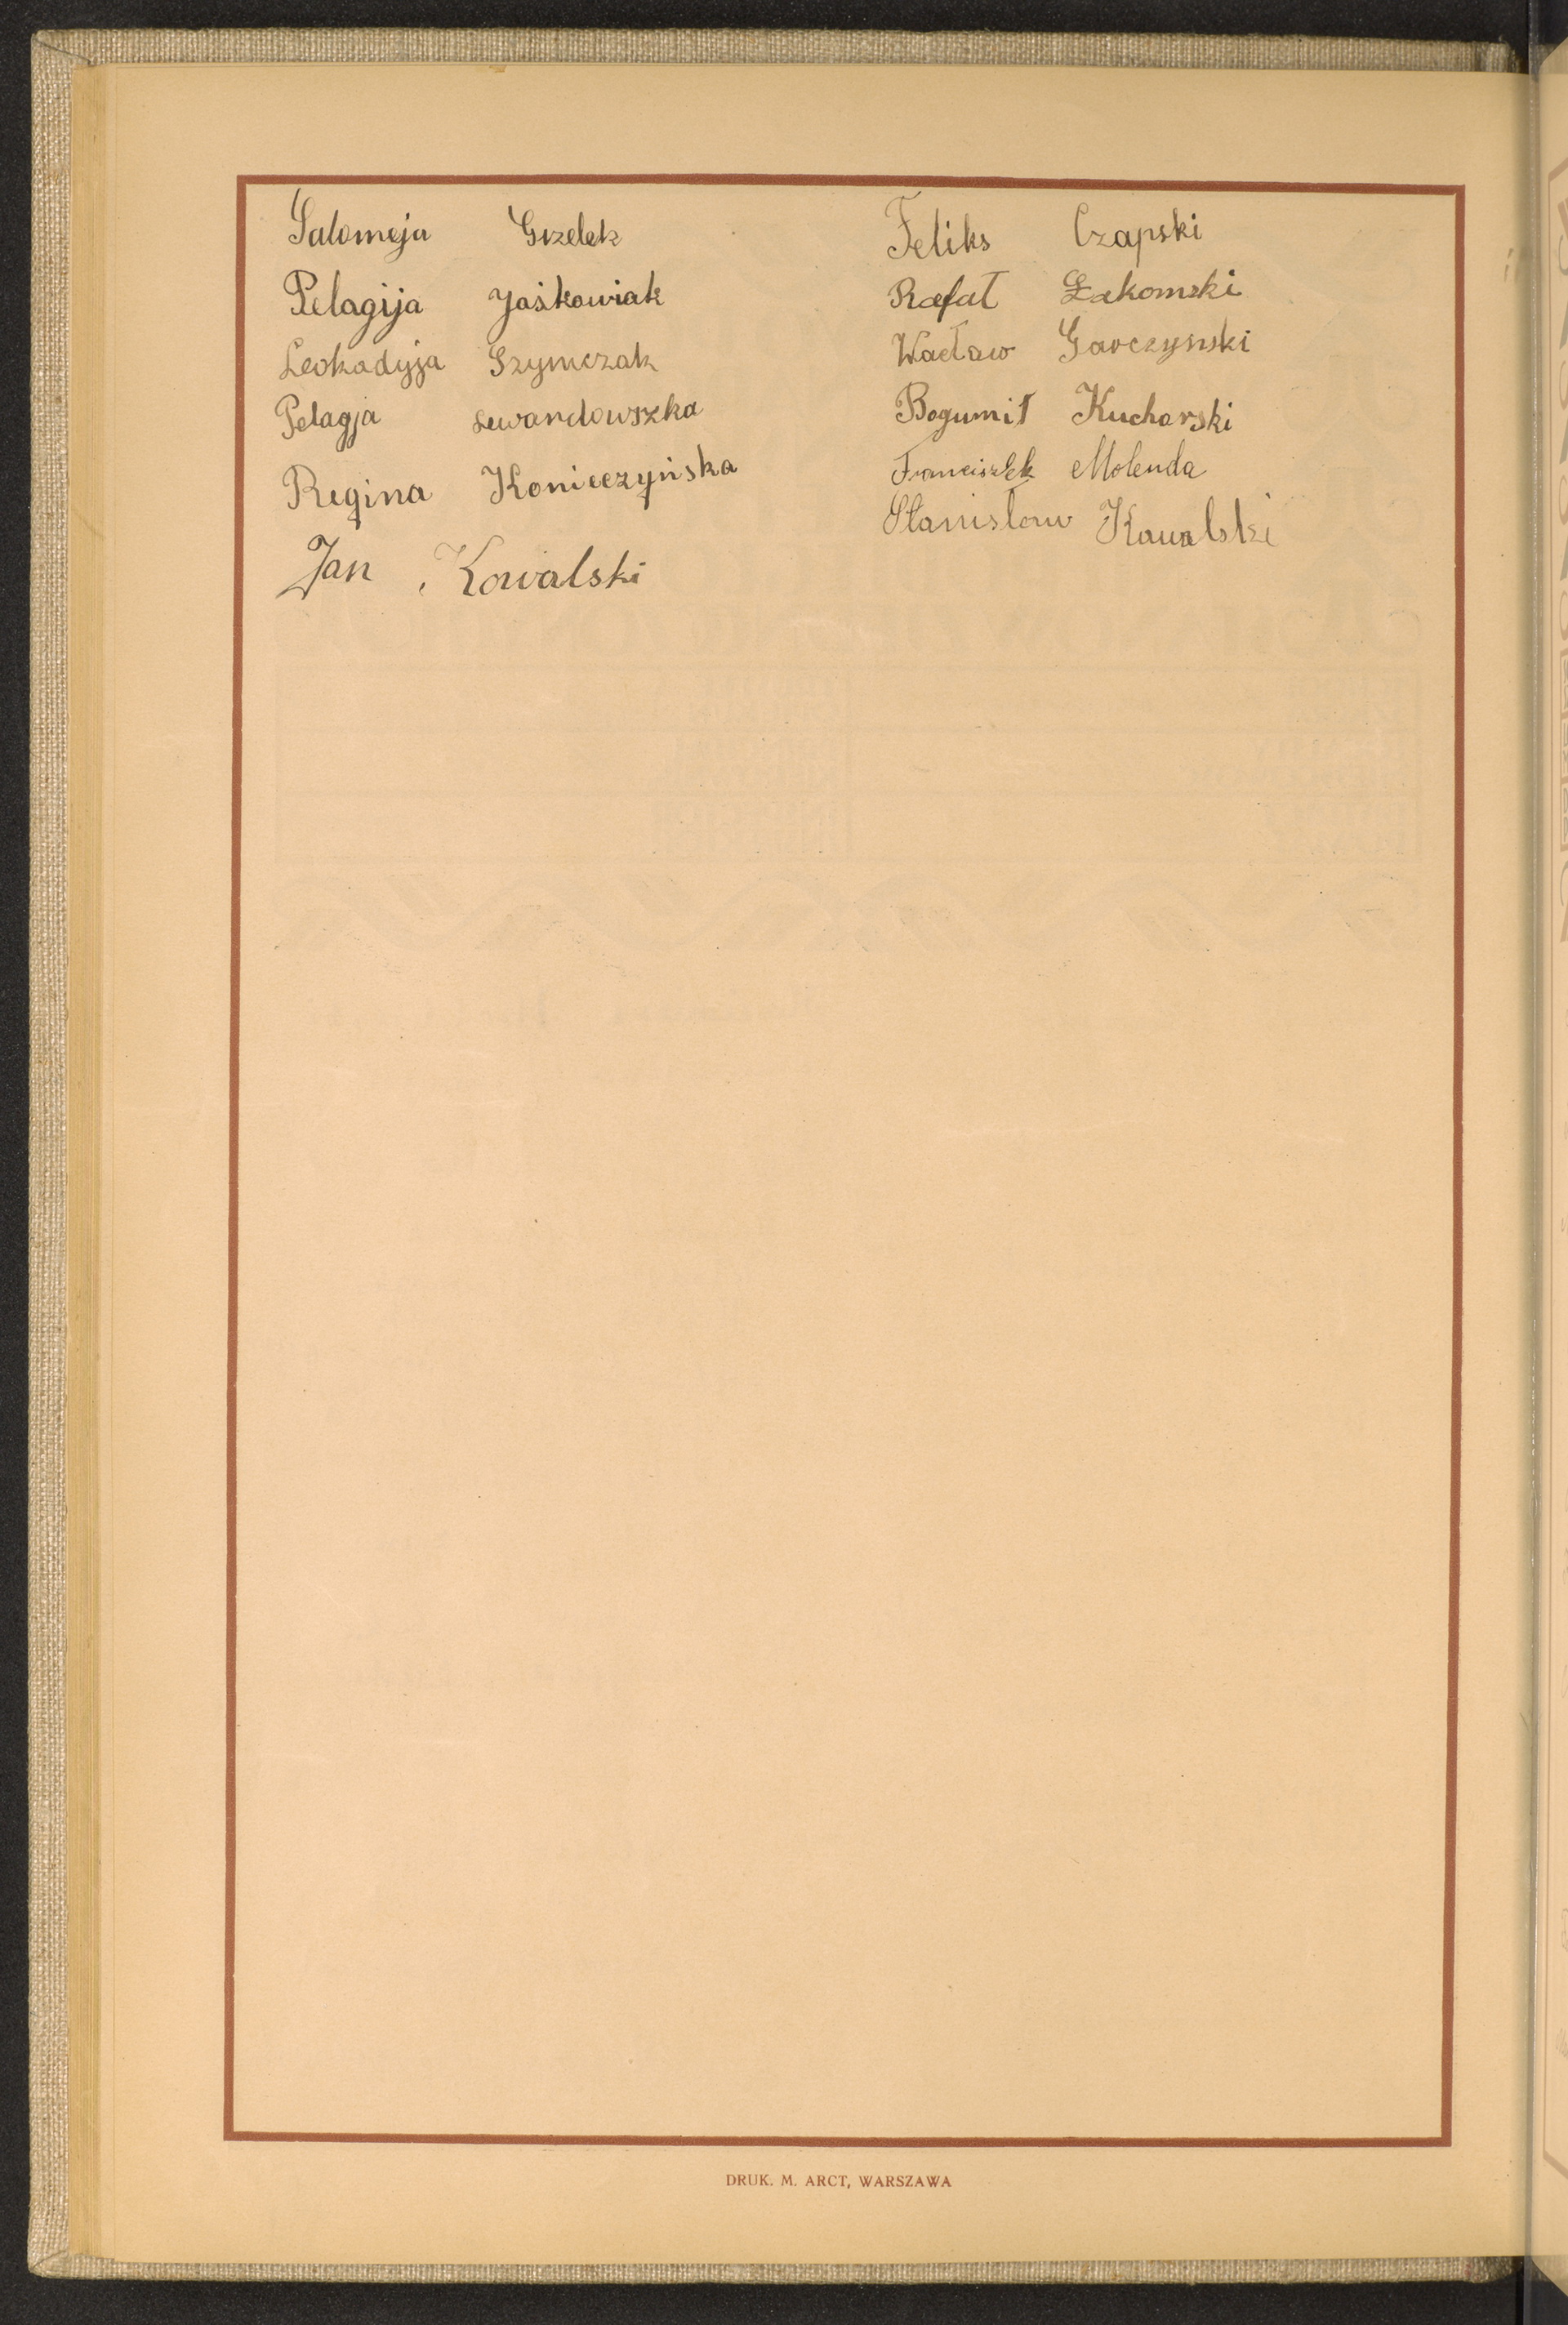 Salomeja Grzelek
Pelagija Jaśkowiak
Leokadyja Szymczak
Pelagja Lewandowszka
Regina Konieczyńska
Jan Kowalski
Feliks Czapski
Rafał Łakomski
Wacław Garczyński
Bogumił Kucharski
Franciszek Molenda
Stanisław Kawalski
DRUK. M. ARCT, WARSZAWA